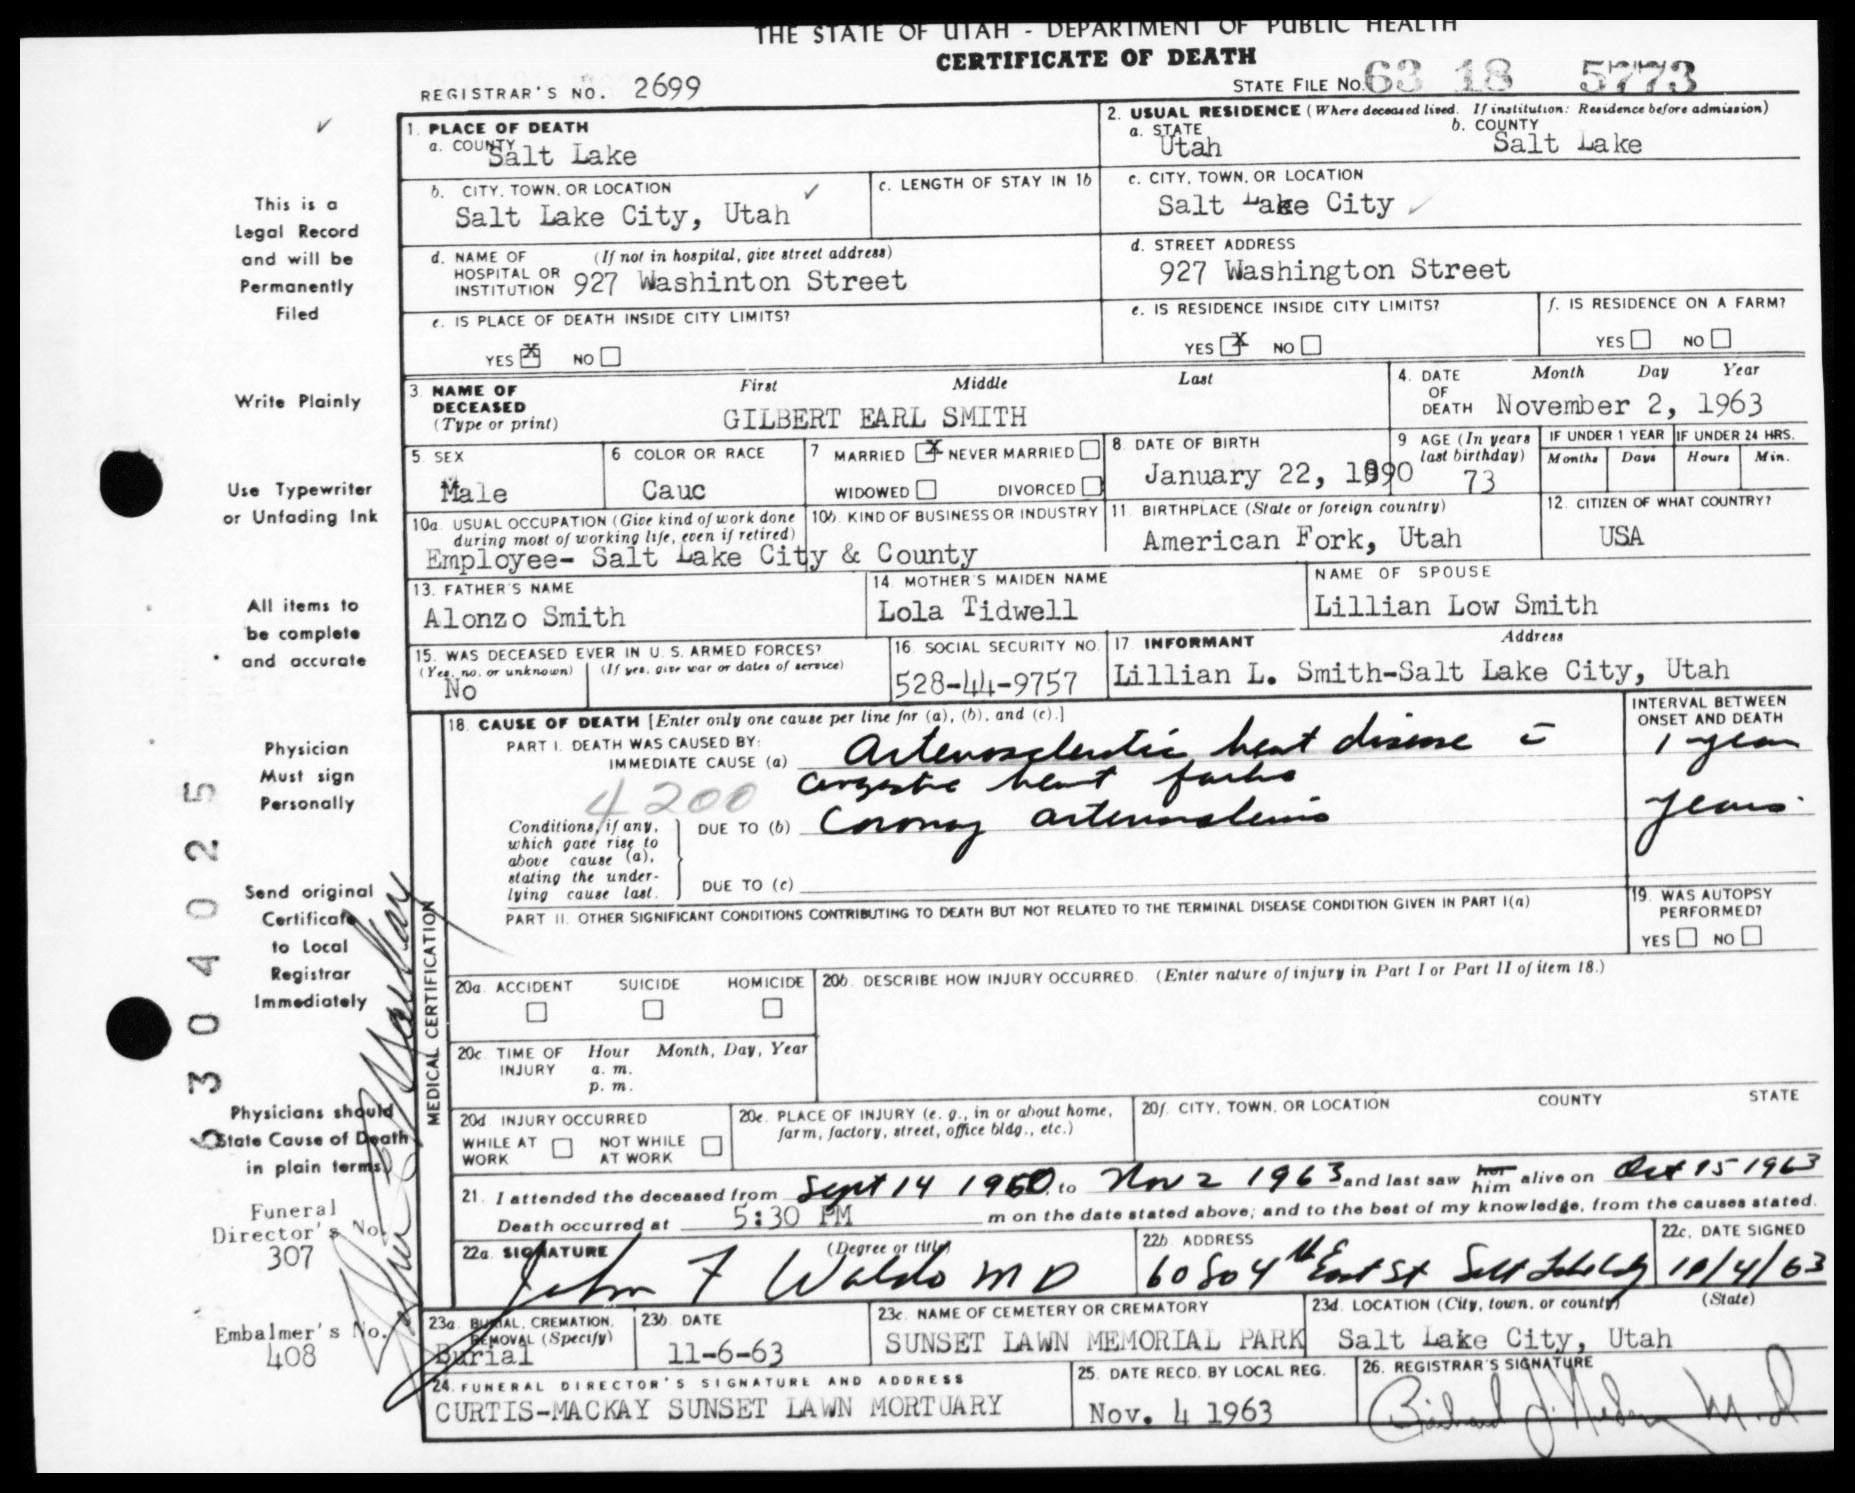 THE STATE OF UTAH - DEPARTMENT OF PUBLIC HEALTH
CERTIFICATE OF DEATH
REGISTRAR'S NO. 2699
STATE FILE NO. 63 18 5773
1. PLACE OF DEATH
a. COUNTY
Salt Lake
2. USUAL RESIDENCE (Where deceased lived. If institution: Residence before admission)
a. STATE
Utah
b. COUNTY
Salt Lake
b. CITY, TOWN, OR LOCATION
Salt Lake City, Utah
c. LENGTH OF STAY IN 1b
c. CITY, TOWN, OR LOCATION
Salt Lake City
d. NAME OF HOSPITAL OR INSTITUTION
(If not in hospital, give street address)
927 Washinton Street
d. STREET ADDRESS
927 Washington Street
e. IS PLACE OF DEATH INSIDE CITY LIMITS?
YES X NO
e. IS RESIDENCE INSIDE CITY LIMITS?
YES X NO
f. IS RESIDENCE ON A FARM?
YES NO
3. NAME OF
DECEASED
(Type or print)
First Middle Last
GILBERT EARL SMITH
4. DATE
OF
DEATH
Month Day Year
November 2, 1963
5. SEX
Male
6 COLOR OR RACE
Cauc
7 MARRIED X NEVER MARRIED
WIDOWED DIVORCED
8 DATE OF BIRTH
January 22, 1890
9 AGE (In years
last birthday)
73
IF UNDER 1 YEAR
Months Days
IF UNDER 24 HRS.
Hours Min.
10a. USUAL OCCUPATION (Give kind of work done
during most of working life, even if retired)
10b. KIND OF BUSINESS OR INDUSTRY
Employee- Salt Lake City & County
11. BIRTHPLACE (State or foreign country)
American Fork, Utah
12. CITIZEN OF WHAT COUNTRY?
USA
13. FATHER'S NAME
Alonzo Smith
14. MOTHER'S MAIDEN NAME
Lola Tidwell
NAME OF SPOUSE
Lillian Low Smith
15. WAS DECEASED EVER IN U. S. ARMED FORCES?
(Yes, no, or unknown) (If yes, give war or dates of service)
No
16. SOCIAL SECURITY NO.
528-44-9757
17 INFORMANT Address
Lillian L. Smith-Salt Lake City, Utah
MEDICAL CERTIFICATION
18. CAUSE OF DEATH [Enter only one cause per line for (a), (b), and (c).]
INTERVAL BETWEEN
ONSET AND DEATH
PART I. DEATH WAS CAUSED BY:
IMMEDIATE CAUSE (a) Arteriosclerotic heart disease c̄
1 year
congestive heart failure
4200
Conditions, if any,
which gave rise to
above cause (a),
stating the under-
lying cause last.
DUE TO (b) Coronary arteriosclerosis
years
DUE TO (c)
PART II. OTHER SIGNIFICANT CONDITIONS CONTRIBUTING TO DEATH BUT NOT RELATED TO THE TERMINAL DISEASE CONDITION GIVEN IN PART I(a)
19. WAS AUTOPSY
PERFORMED?
YES NO
20a. ACCIDENT SUICIDE HOMICIDE
20b. DESCRIBE HOW INJURY OCCURRED. (Enter nature of injury in Part I or Part II of item 18.)
20c. TIME OF
INJURY
Hour Month, Day, Year
a. m.
p. m.
20d. INJURY OCCURRED
WHILE AT
WORK
NOT WHILE
AT WORK
20e. PLACE OF INJURY (e. g., in or about home,
farm, factory, street, office bldg., etc.)
20f. CITY, TOWN, OR LOCATION COUNTY STATE
21. I attended the deceased from Sept 14 1960, to Nov 2 1963 and last saw her him alive on Oct 15 1963
Death occurred at 5:30 PM m on the date stated above; and to the best of my knowledge, from the causes stated.
22a. SIGNATURE (Degree or title)
John F Waldo MD
22b. ADDRESS
60 So 4th East St Salt Lake City
22c. DATE SIGNED
/4/63
23a. BURIAL, CREMATION,
REMOVAL (Specify)
Burial
23b. DATE
11-6-63
23c. NAME OF CEMETERY OR CREMATORY
SUNSET LAWN MEMORIAL PARK
23d. LOCATION (City, town, or county) (State)
Salt Lake City, Utah
24. FUNERAL DIRECTOR'S SIGNATURE AND ADDRESS
CURTIS-MACKAY SUNSET LAWN MORTUARY
25. DATE RECD. BY LOCAL REG.
Nov. 4 1963
26. REGISTRAR'S SIGNATURE
This is a
Legal Record
and will be
Permanently
Filed
Write Plainly
Use Typewriter
or Unfading Ink
All items to
be complete
and accurate
Physician
Must sign
Personally
Send original
Certificate
to Local
Registrar
Immediately
Physicians should
State Cause of Death
in plain terms
Funeral
Director's No.
307
Embalmer's No.
408
6304025